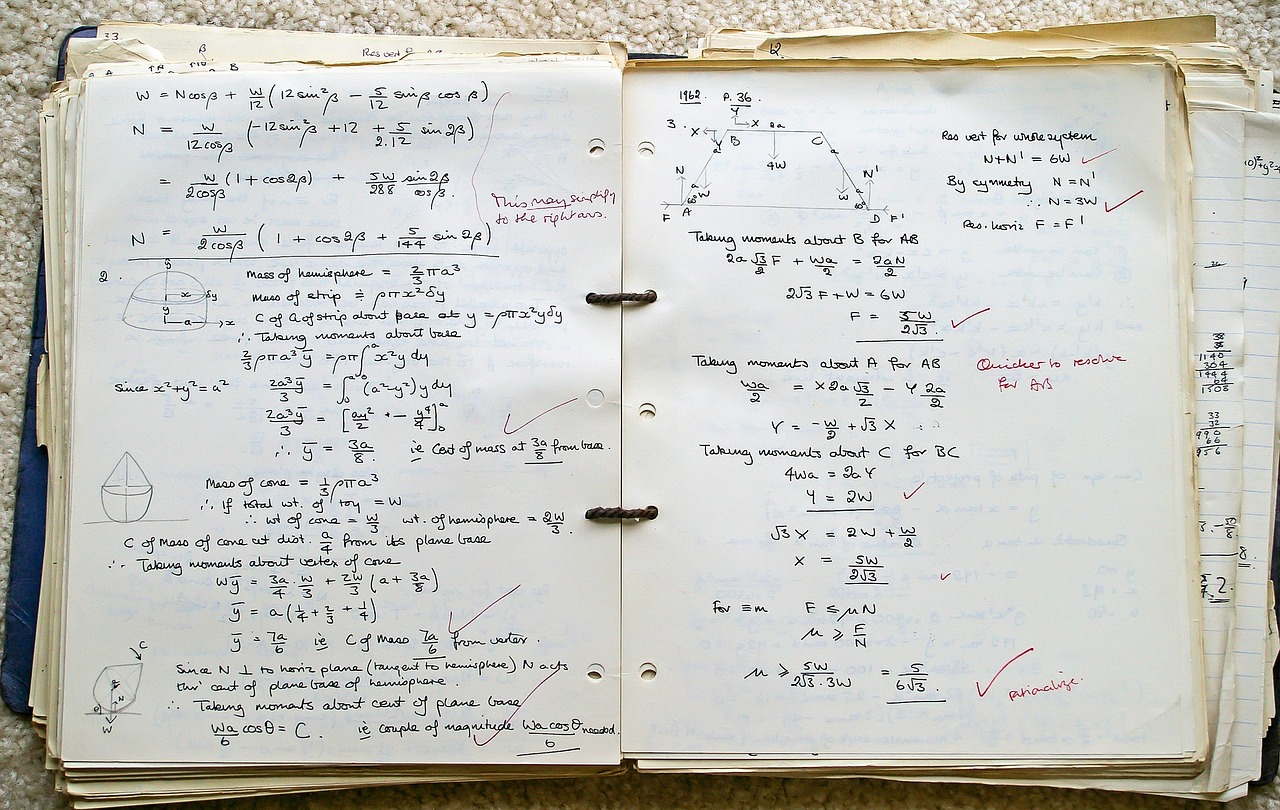 33.
β
Res vert
A
B
W = N cosβ + W/12 (12 sin²β − 5/12 sinβ cosβ)
N = W/12cosβ (−12 sin²β + 12 + 5/2.12 sin 2β)
= W/2cosβ (1 + cos2β) + 5W/288 sin2β/cosβ.
This may simplify
to the right ans.
N = W/2cosβ (1 + cos 2β + 5/144 sin 2β)
2.
y
x
δy
y
a
x
Mass of hemisphere = 2/3 πa³
Mass of strip ≑ ρπx²δy
C of G of strip about base at y = ρπx²yδy
∴ Taking moments about base
2/3 ρπa³ȳ = ρπ∫₀ᵃ x²y dy
Since x²+y² = a² 2a³ȳ/3 = ∫₀ᵃ (a²−y²)y dy
2a³ȳ/3 = [ay²/2 − y⁴/4]₀ᵃ
∴ ȳ = 3a/8 ie Cent of mass at 3a/8 from base.
Mass of cone = 1/3 ρπa³
∴ If total wt. of toy = W
∴ wt of cone = W/3 wt. of hemisphere = 2W/3.
C of Mass of cone at dist. a/4 from its plane base
∴ Taking moments about vertex of cone
Wȳ = 3a/4 . W/3 + 2W/3 (a + 3a/8)
ȳ = a(1/4 + 2/3 + 1/4)
ȳ = 7a/6 ie C of Mass 7a/6 from vertex.
C
N
θ
W
Since N ⊥ to horiz plane (tangent to hemisphere) N acts
thro' cent of plane base of hemisphere.
∴ Taking moments about cent of plane base
Wa/6 cosθ = C. ie couple of magnitude Wa cosθ/6 needed.
12.
1962. P. 36.
3.
Y
X
X
2a
B
C
Y
a
a
4W
N
a
W
W
a
N'
60°
60°
F
A
D
F'
Res vert for whole system
N + N' = 6W
By symmetry N = N'
∴ N = 3W
Res. horiz F = F'
Taking moments about B for AB
2a √3/2 F + Wa/2 = 2aN/2
2√3 F + W = 6W
F = 5W/2√3.
Taking moments about A for AB
Quicker to resolve
for AB
Wa/2 = X 2a √3/2 − Y 2a/2
Y = −W/2 + √3 X
Taking moments about C for BC
4Wa = 2aY
Y = 2W
√3 X = 2W + W/2
X = 5W/2√3
For ≡m F ≤ μN
μ ≥ F/N
μ ≥ 5W/2√3.3W = 5/6√3.
rationalize.
38
38
1140
304
1444
64
1508
33
32
990
66